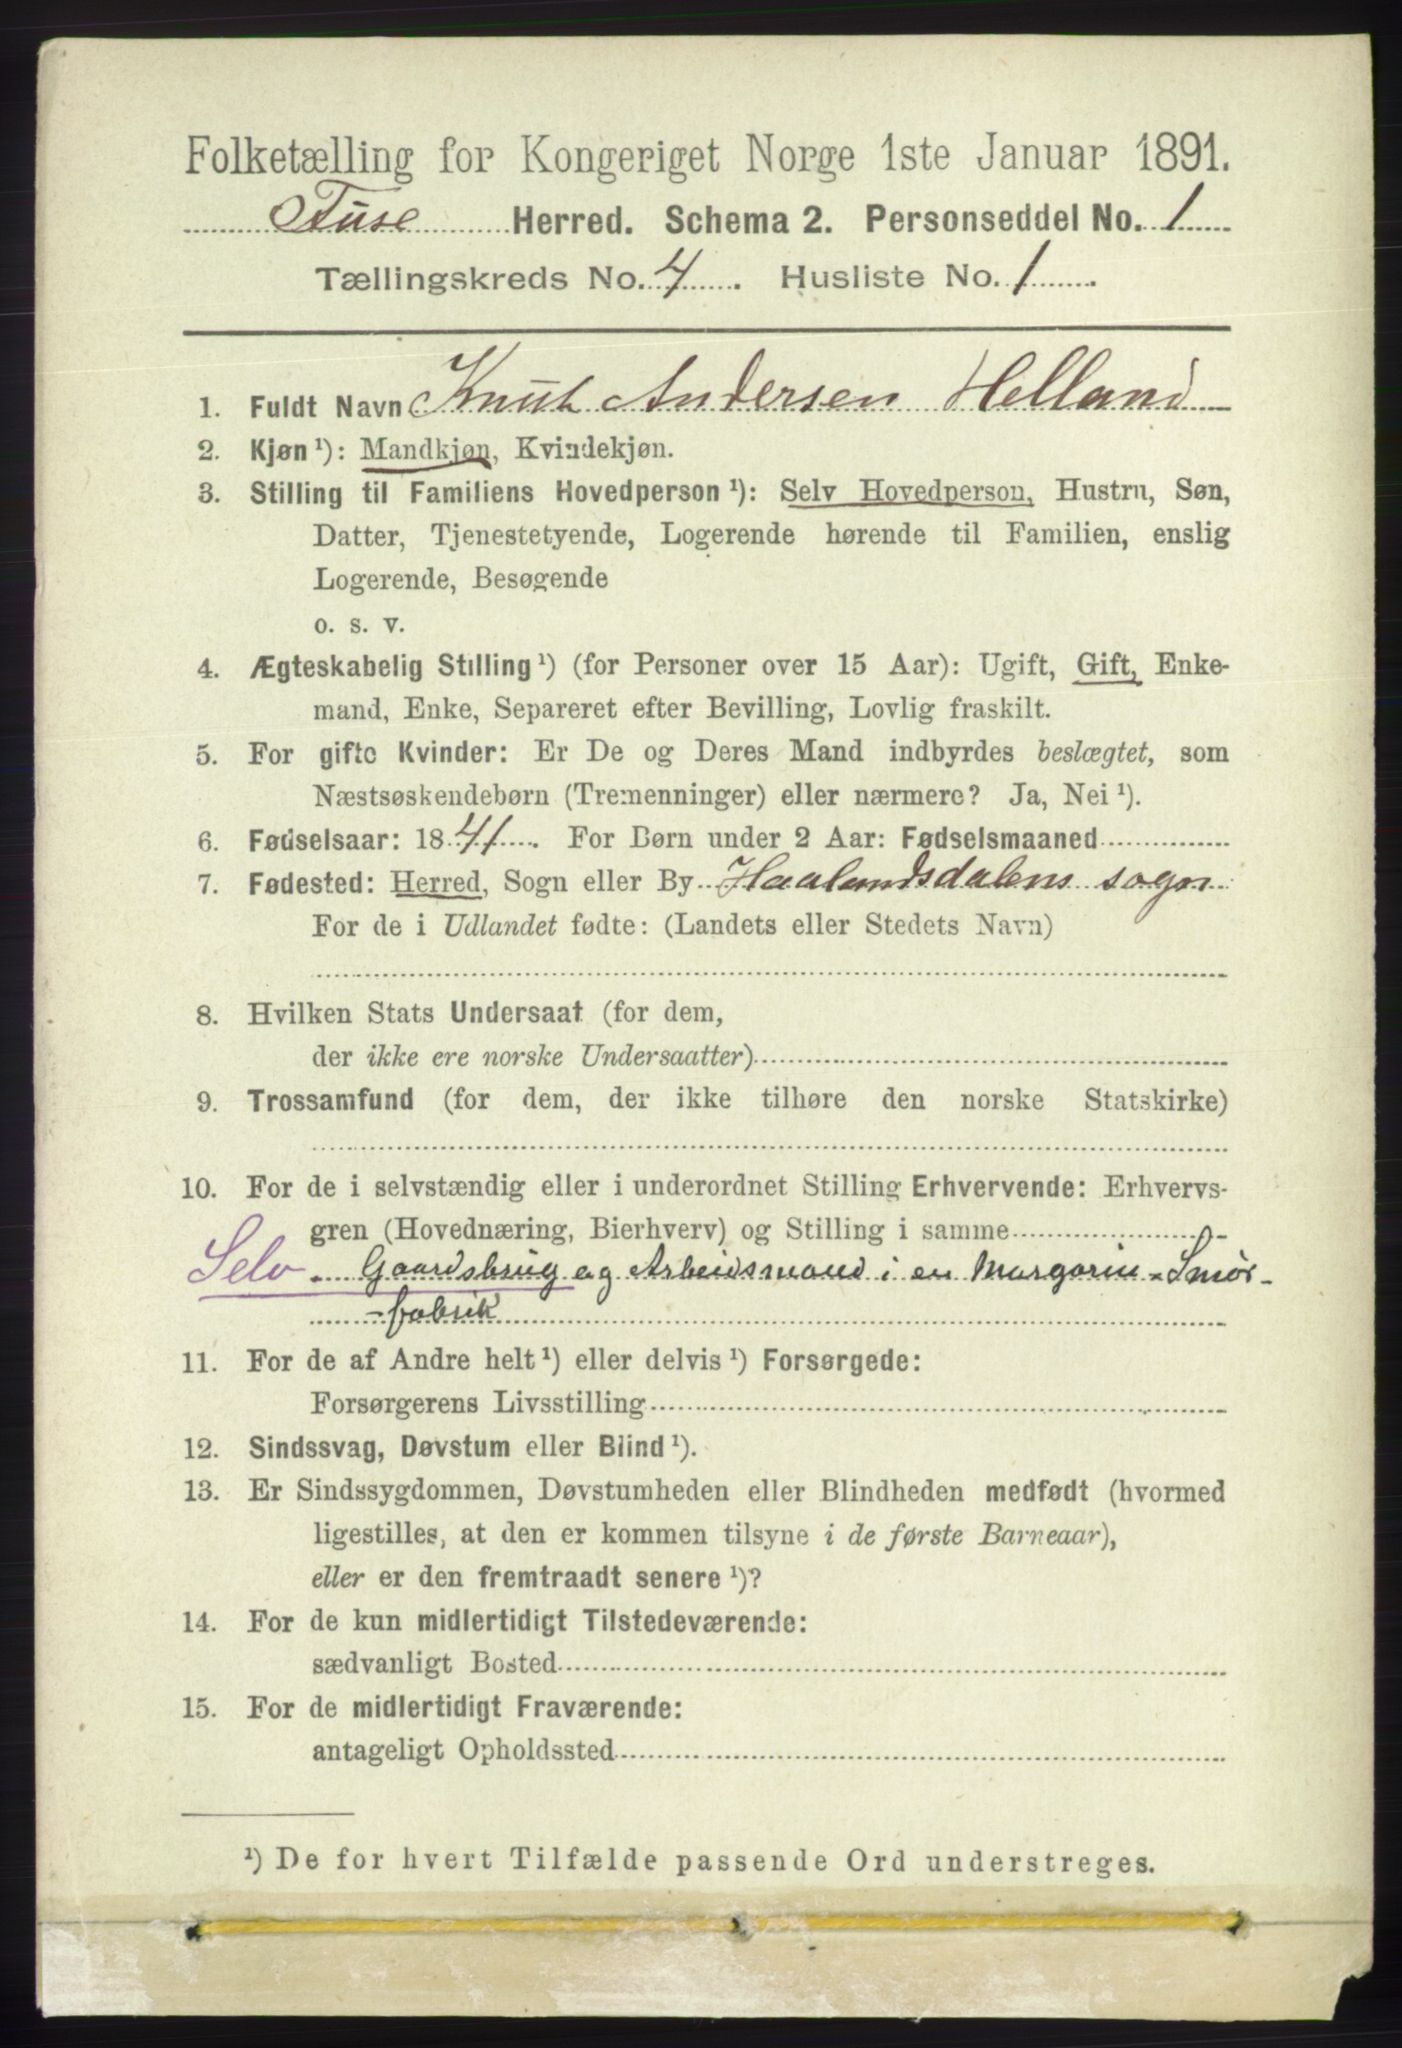 Folketælling for Kongeriget Norge 1ste Januar 1891.
Fuse Herred. Schema 2. Personseddel No. 1
Tællingskreds No. 4. Husliste No. 1.
1. Fuldt Navn Knut Andersen Helland
2. Kjøn ¹): Mandkjøn, Kvindekjøn.
3. Stilling til Familiens Hovedperson ¹): Selv Hovedperson, Hustru, Søn,
Datter, Tjenestetyende, Logerende hørende til Familien, enslig
Logerende, Besøgende
o. s. v.
4. Ægteskabelig Stilling ¹) (for Personer over 15 Aar): Ugift, Gift, Enke-
mand, Enke, Separeret efter Bevilling, Lovlig fraskilt.
5. For gifte Kvinder: Er De og Deres Mand indbyrdes beslægtet, som
Næstsøskendebørn (Tremenninger) eller nærmere? Ja, Nei ¹).
6. Fødselsaar: 1841. For Børn under 2 Aar: Fødselsmaaned
7. Fødested: Herred, Sogn eller By Haalandsdalens sogn
For de i Udlandet fødte: (Landets eller Stedets Navn)
8. Hvilken Stats Undersaat (for dem,
der ikke ere norske Undersaatter)
9. Trossamfund (for dem, der ikke tilhøre den norske Statskirke)
10. For de i selvstændig eller i underordnet Stilling Erhvervende: Erhvervs-
gren (Hovednæring, Bierhverv) og Stilling i samme
Selv. Gaardsbrug og Arbeidsmand i en Margarin-Smør-
-fabrik
11. For de af Andre helt ¹) eller delvis ¹) Forsørgede:
Forsørgerens Livsstilling
12. Sindssvag, Døvstum eller Blind ¹).
13. Er Sindssygdommen, Døvstumheden eller Blindheden medfødt (hvormed
ligestilles, at den er kommen tilsyne i de første Barneaar),
eller er den fremtraadt senere ¹)?
14. For de kun midlertidigt Tilstedeværende:
sædvanligt Bosted
15. For de midlertidigt Fraværende:
antageligt Opholdssted
¹) De for hvert Tilfælde passende Ord understreges.